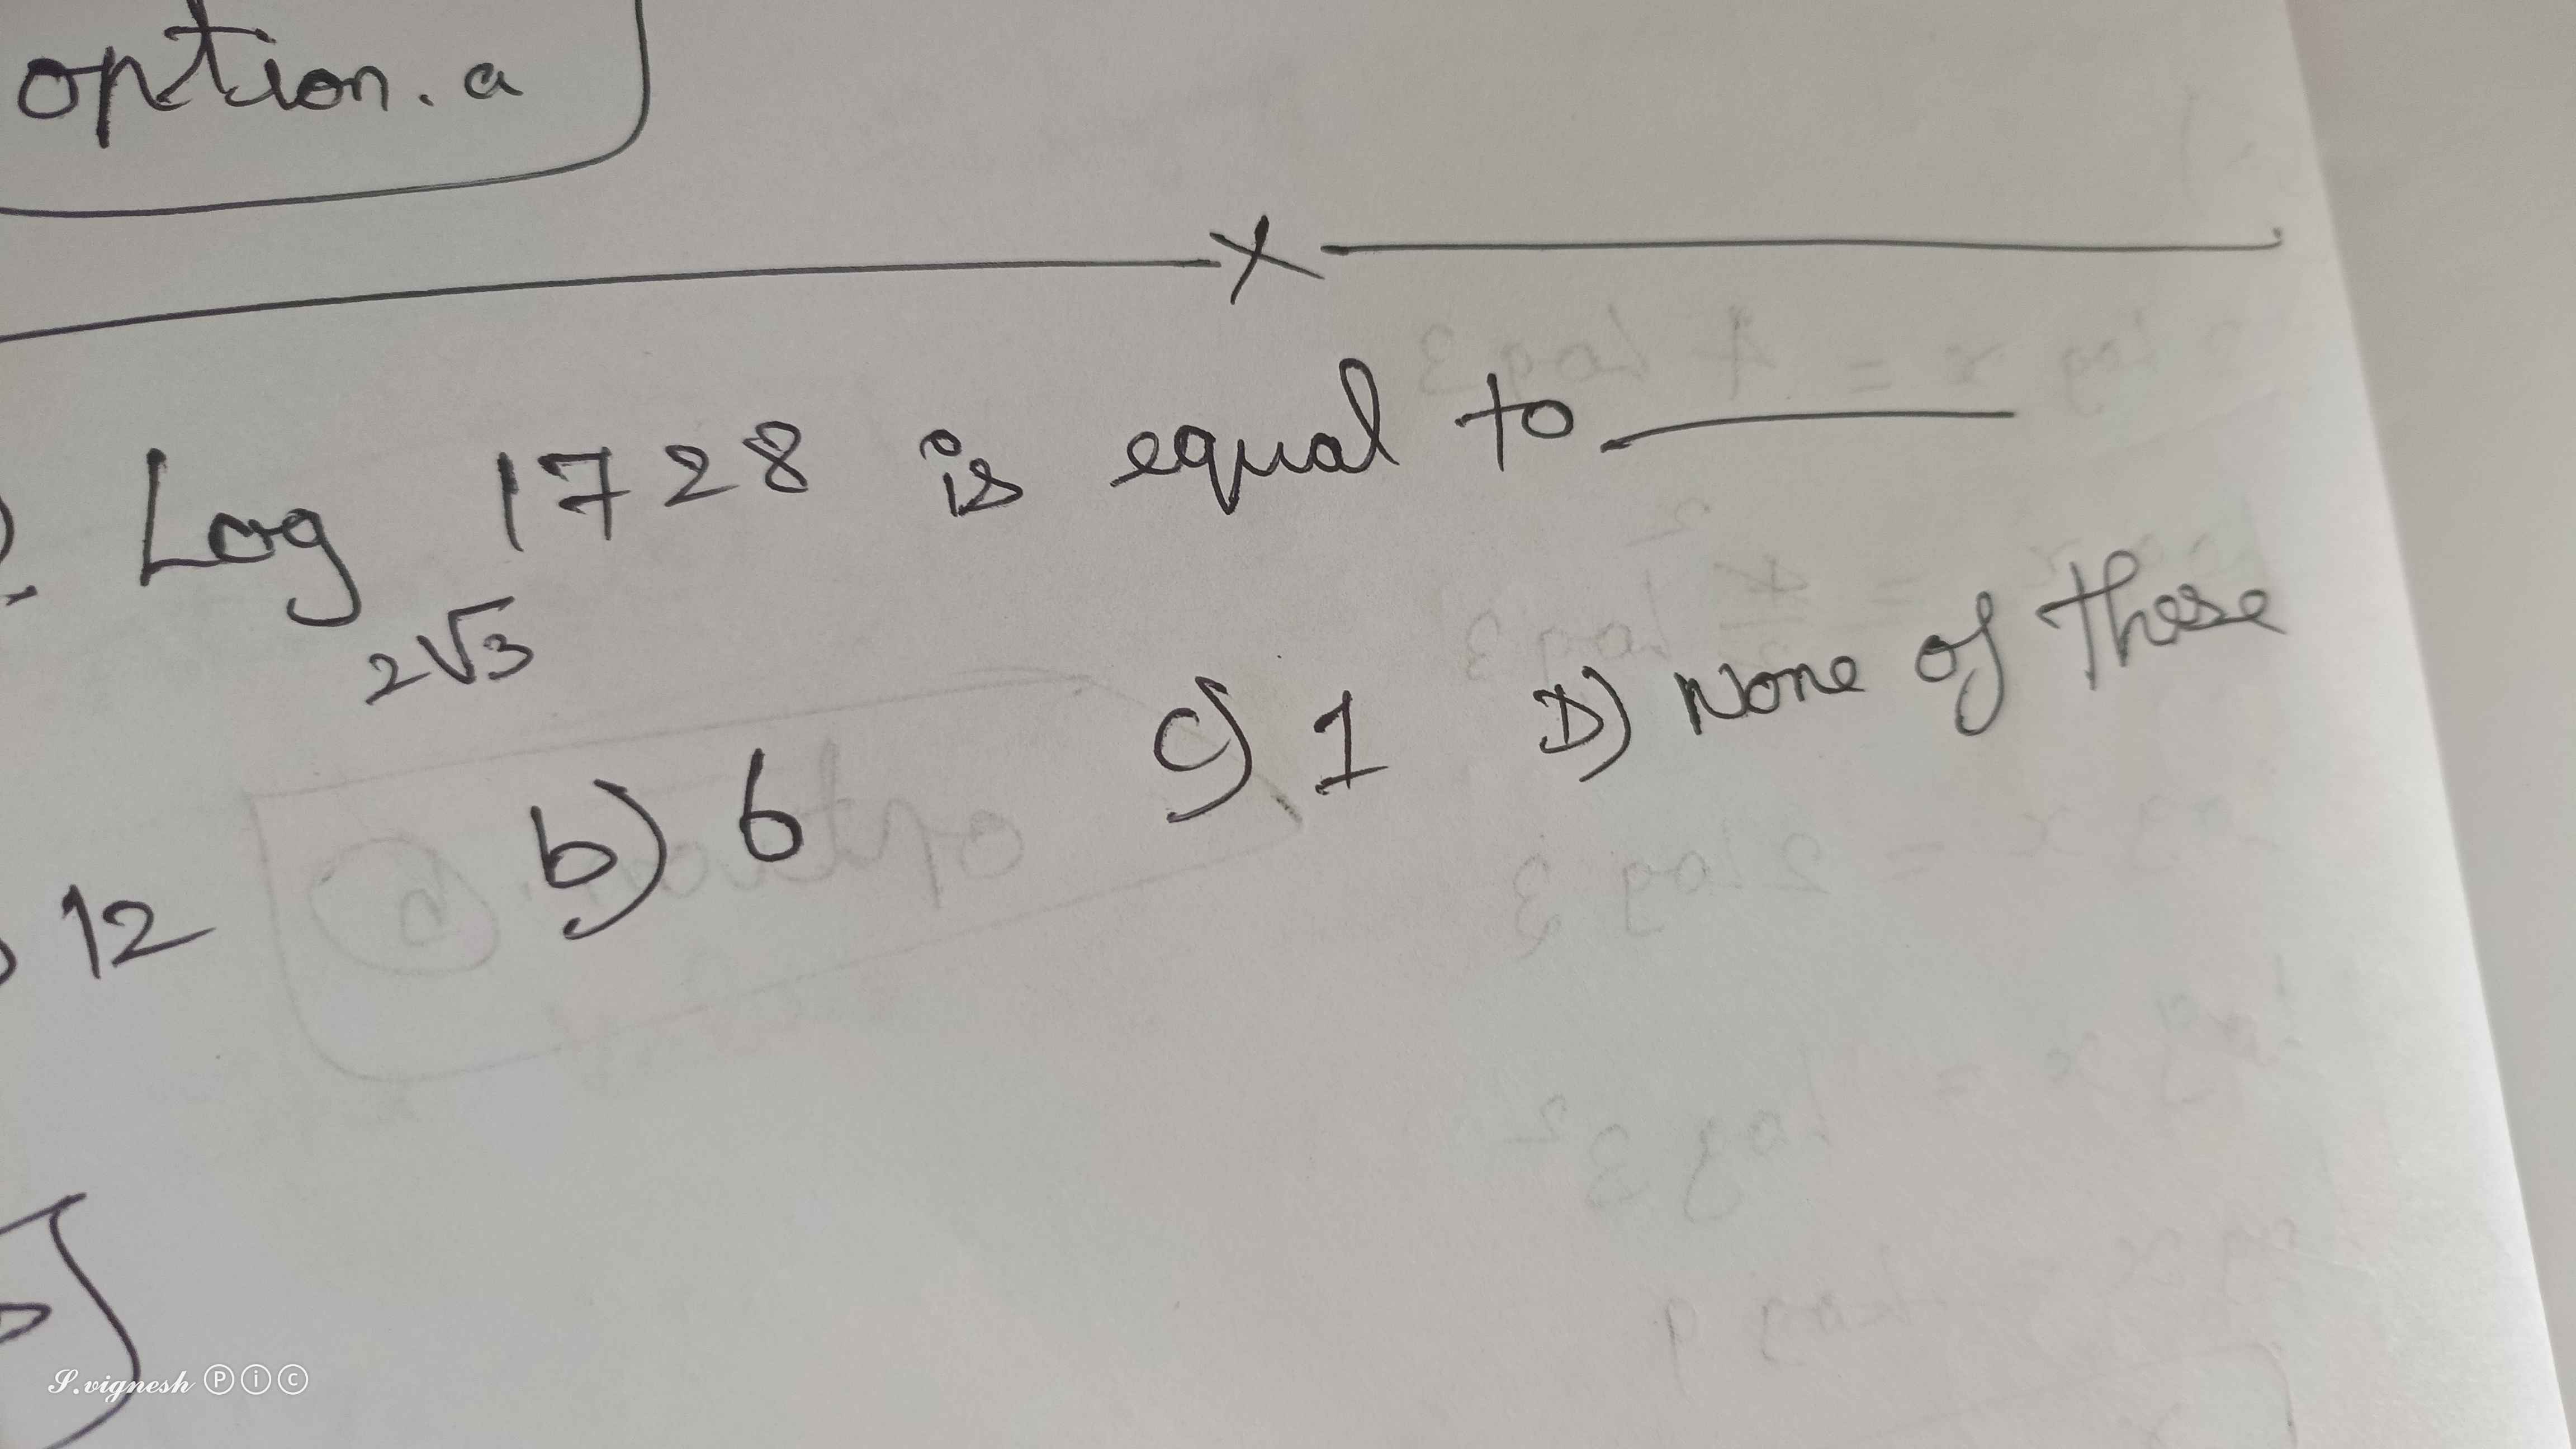 option. a
x
Log 1728 is equal to ______
2√3
12 b) 6 c) 1 D) None of these
S.vignesh Ⓟⓘⓒ